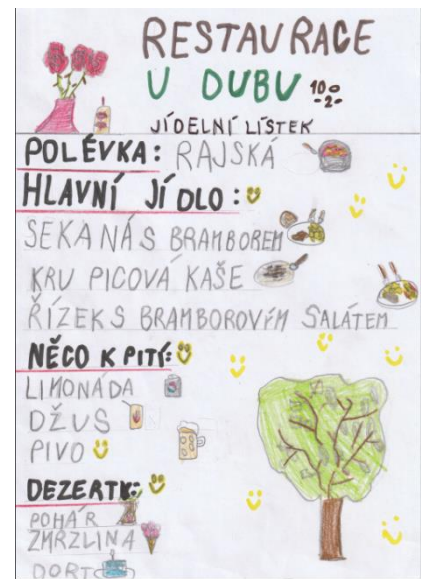 RESTAURACE
U DUBU
JÍDELNÍ LÍSTEK
POLÉVKA: RAJSKÁ
HLAVNÍ JÍDLO:
SEKANÁ S BRAMBOREM
KRUPICOVÁ KAŠE
ŘÍZEK S BRAMBOROVÝM SALÁTEM
NĚCO K PITÍ:
LIMONÁDA
DŽUS
PIVO
DEZERTY:
POHÁR
ZMRZLINA
DORT